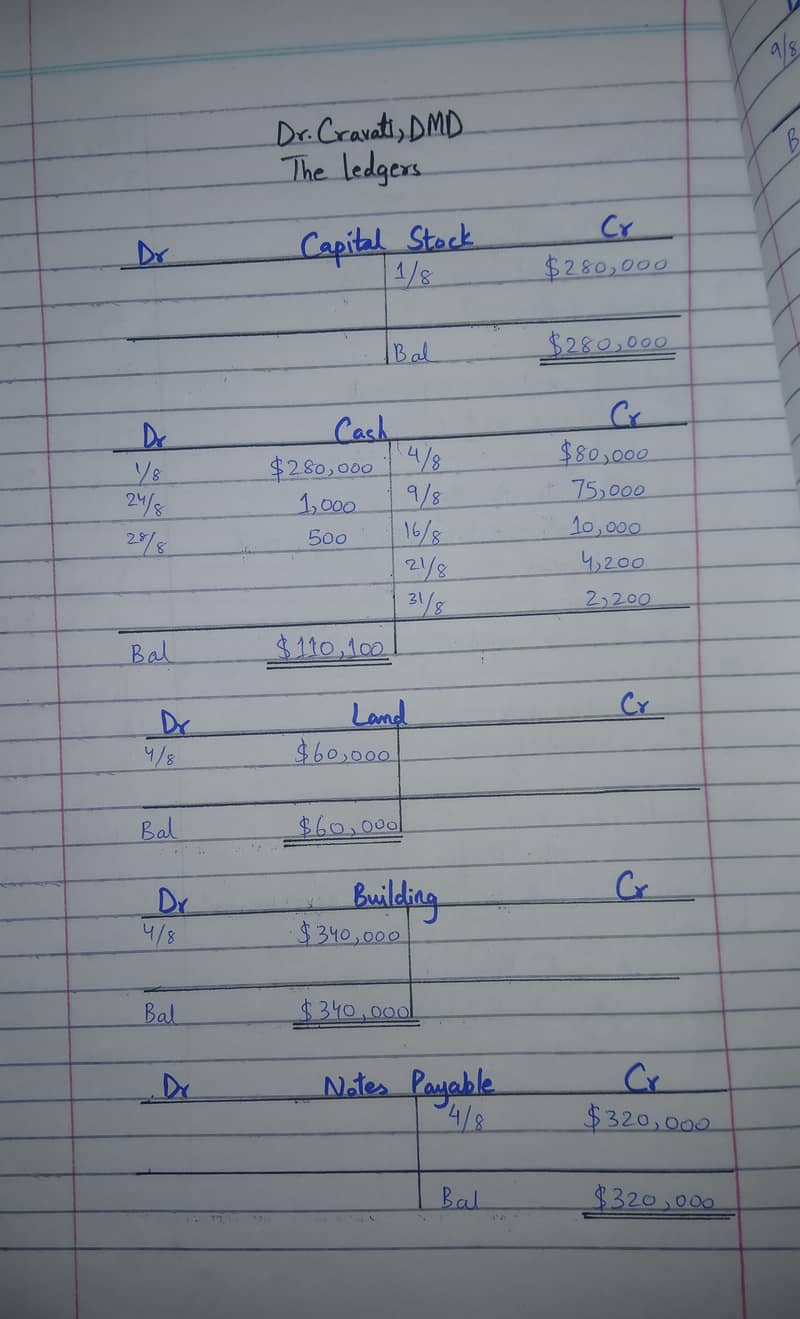 Dr. Cravati, DMD
The ledgers
Dr Capital Stock Cr
1/8 $280,000
Bal $280,000
Dr Cash Cr
1/8 $280,000 4/8 $80,000
24/8 1,000 9/8 75,000
28/8 500 16/8 10,000
21/8 4,200
31/8 2,200
Bal $110,100
Dr Land Cr
4/8 $60,000
Bal $60,000
Dr Building Cr
4/8 $340,000
Bal $340,000
Dr Notes Payable Cr
4/8 $320,000
Bal $320,000
9/8
B